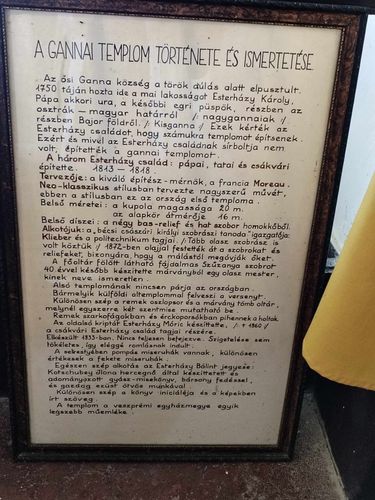 A GANNAI TEMPLOM TÖRTÉNETE ÉS ISMERTETÉSE
Az ősi Ganna község a török dúlás alatt elpusztult.
1750 táján hozta ide a mai lakosságot Esterházy Károly,
Pápa akkori ura, a későbbi egri püspök, részben az
osztrák – magyar határról /: nagygannaiak/
részben Bajor földről. /: Kisganna:/ Ezek kérték az
Esterházy családot, hogy számukra templomot építsenek.
Ezért és mivel az Esterházy családnak sírboltja nem
volt, építették a gannai templomot.
A három Esterházy család: pápai, tatai és csákvári
építette 1813 – 1818.
Tervezője: a kiváló építész-mérnök, a francia Moreau.
Neo-klasszikus stílusban tervezte nagyszerű művét,
ebben a stílusban ez az ország első temploma.
Belső méretei: a kupola magassága 20 m.
az alapkör átmérője 16 m.
Belső díszei: a négy bas-relief és hat szobor homokkőből.
Alkotójuk: a bécsi császári királyi szobrászati tanoda "igazgatója:
Klieber és a politechnikum tagjai. /: Több olasz szobrász is
volt köztük:/ 1872-ben olajjal festették át a szobrokat és
reliefeket, bizonyára, hogy a málástól megóvják őket.
A főoltár fölött látható fájdalmas Szűzanya szobrot
40 évvel később készítette márványból egy olasz mester,
kinek neve ismeretlen.
Alsó templomának nincsen párja az országban.
Bármelyik külföldi altemplommal felveszi a versenyt.
Különösen szép a remek oszlopsor és a márvány tömb oltár,
melynél egyszerre két szentmise mutatható be
Remek szarkofágokban és érckoporsókban pihennek a holtak.
Az oldalsó kriptát Esterházy Móric készítette, /: + 1960/
a csákvári Esterházy család tagjai részére.
Elkészült 1933-ban. Nincs teljesen befejezve. Szigetelése sem
tökéletes, így eléggé romlásnak indult.
A sekrestyében pompás miseruhák vannak, különösen
értékesek a fekete miseruhák.
Egészen szép alkotás az Esterházy Bálint jegyese:
Kotschubey Ilona hercegnő által készíttetett és
adományozott gyász-misekönyv, bársony fedéssel,
és gazdag ezüst ötvös munkával.
Különösen szép a könyv iniciáléja és a képekben
írt szöveg.
A templom a veszprémi egyházmegye egyik
legszebb műemléke.